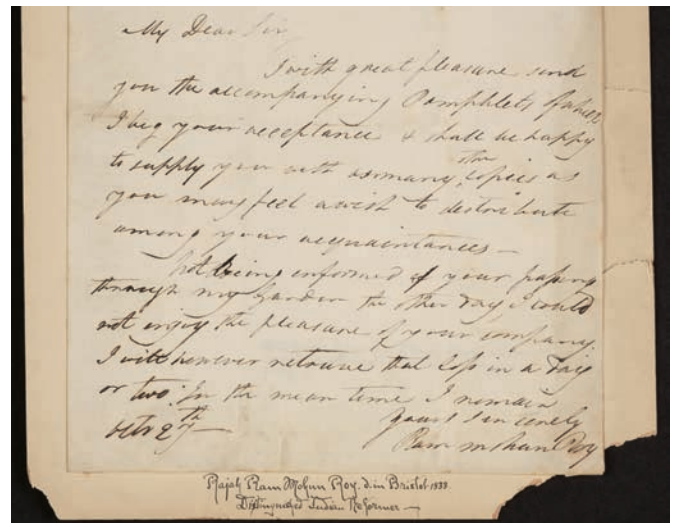 My Dear Sir,
I with great pleasure send
you the accompanying Pamphlets of which
I beg your acceptance & shall be happy
to supply you with as many other copies as
you may feel a wish to distribute
among your acquaintances —
Not being informed of your passing
through my Garden the other day I could
not enjoy the pleasure of your company.
I will however retrieve that loss in a day
or two. In the mean time I remain
Yours Sincerely
27th —
Rammohun Roy
Rajah Ram Mohun Roy. d. in Bristol 1833.
Distinguished Indian Reformer —